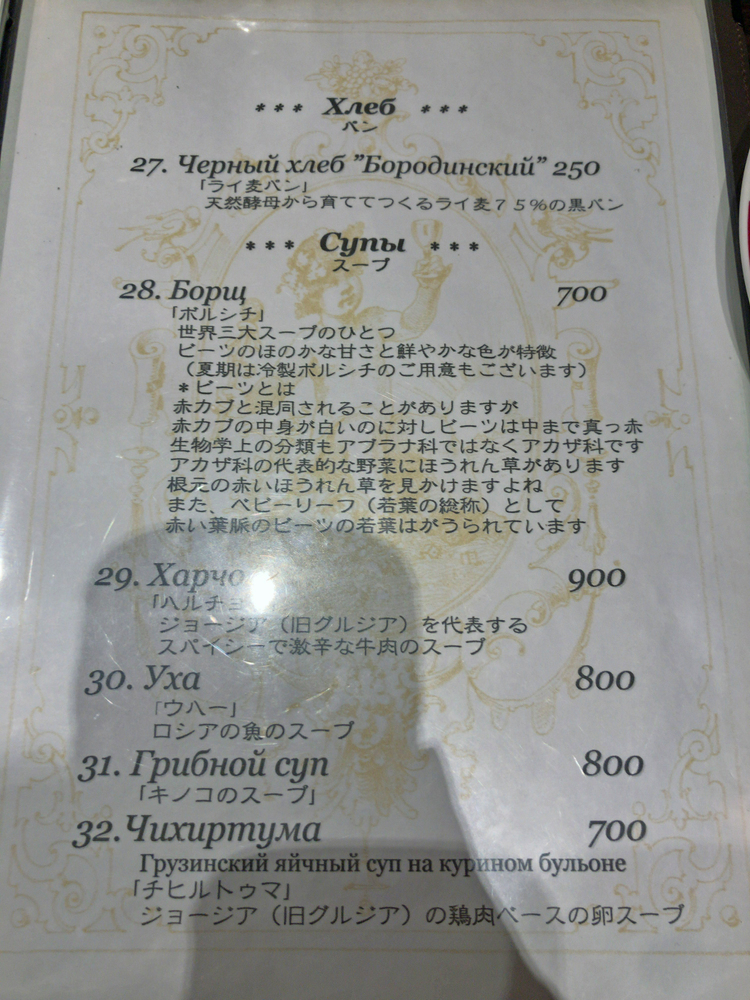 *** Хлеб ***
パン
27. Черный хлеб "Бородинский" 250
「ライ麦パン」
天然酵母から育ててつくるライ麦75%の黒パン
*** Супы ***
スープ
28. Борщ 700
「ボルシチ」
世界三大スープのひとつ
ビーツのほのかな甘さと鮮やかな色が特徴
(夏期は冷製ボルシチのご用意もございます)
*ビーツとは
赤カブと混同されることがありますが
赤カブの中身が白いのに対しビーツは中まで真っ赤
生物学上の分類もアブラナ科ではなくアカザ科です
アカザ科の代表的な野菜にほうれん草があります
根元の赤いほうれん草を見かけますよね
また、ベビーリーフ(若葉の総称)として
赤い葉脈のビーツの若葉はがうられています
29. Харчо 900
「ハルチョ
ジョージア(旧グルジア)を代表する
スパイシーで激辛な牛肉のスープ
30. Уха 800
「ウハー」
ロシアの魚のスープ
31. Грибной суп 800
「キノコのスープ」
32. Чихиртума 700
Грузинский яйчный суп на курином бульоне
「チヒルトゥマ」
ジョージア(旧グルジア)の鶏肉ベースの卵スープ